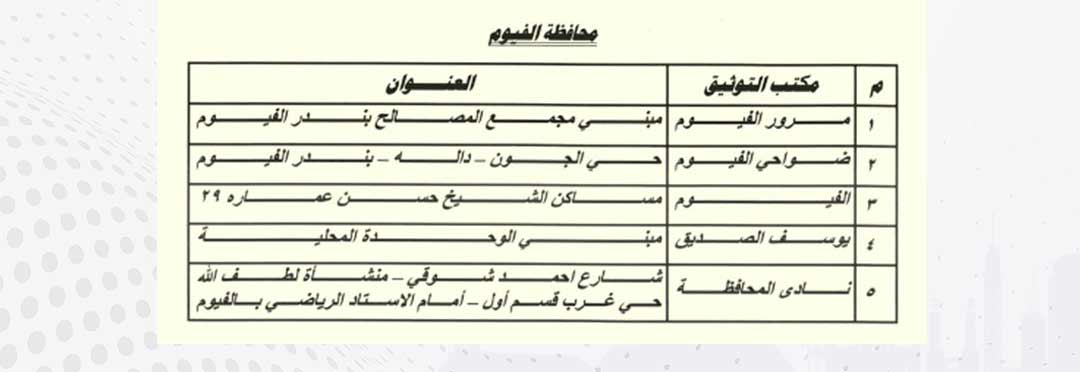 محافظة الفيوم
م مكتب التوثيق العنوان
١ مرور الفيوم مبني مجمع المصالح بندر الفيوم
٢ ضواحي الفيوم حي الجون - داله - بندر الفيوم
٣ الفيوم مساكن الشيخ حسن عماره ٢٩
٤ يوسف الصديق مبني الوحدة المحلية
٥ نادى المحافظة شارع احمد شوقي - منشأة لطف الله
حي غرب قسم أول - أمام الاستاد الرياضي بالفيوم